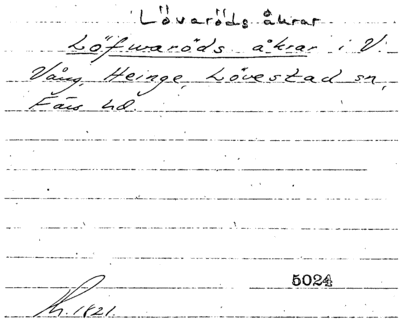 Lövaröds åkrar
Löfwaröds åkrar i V.
Vång, Heinge, Lövestad sn,
Färs hd.
5024
Lh. 1821.